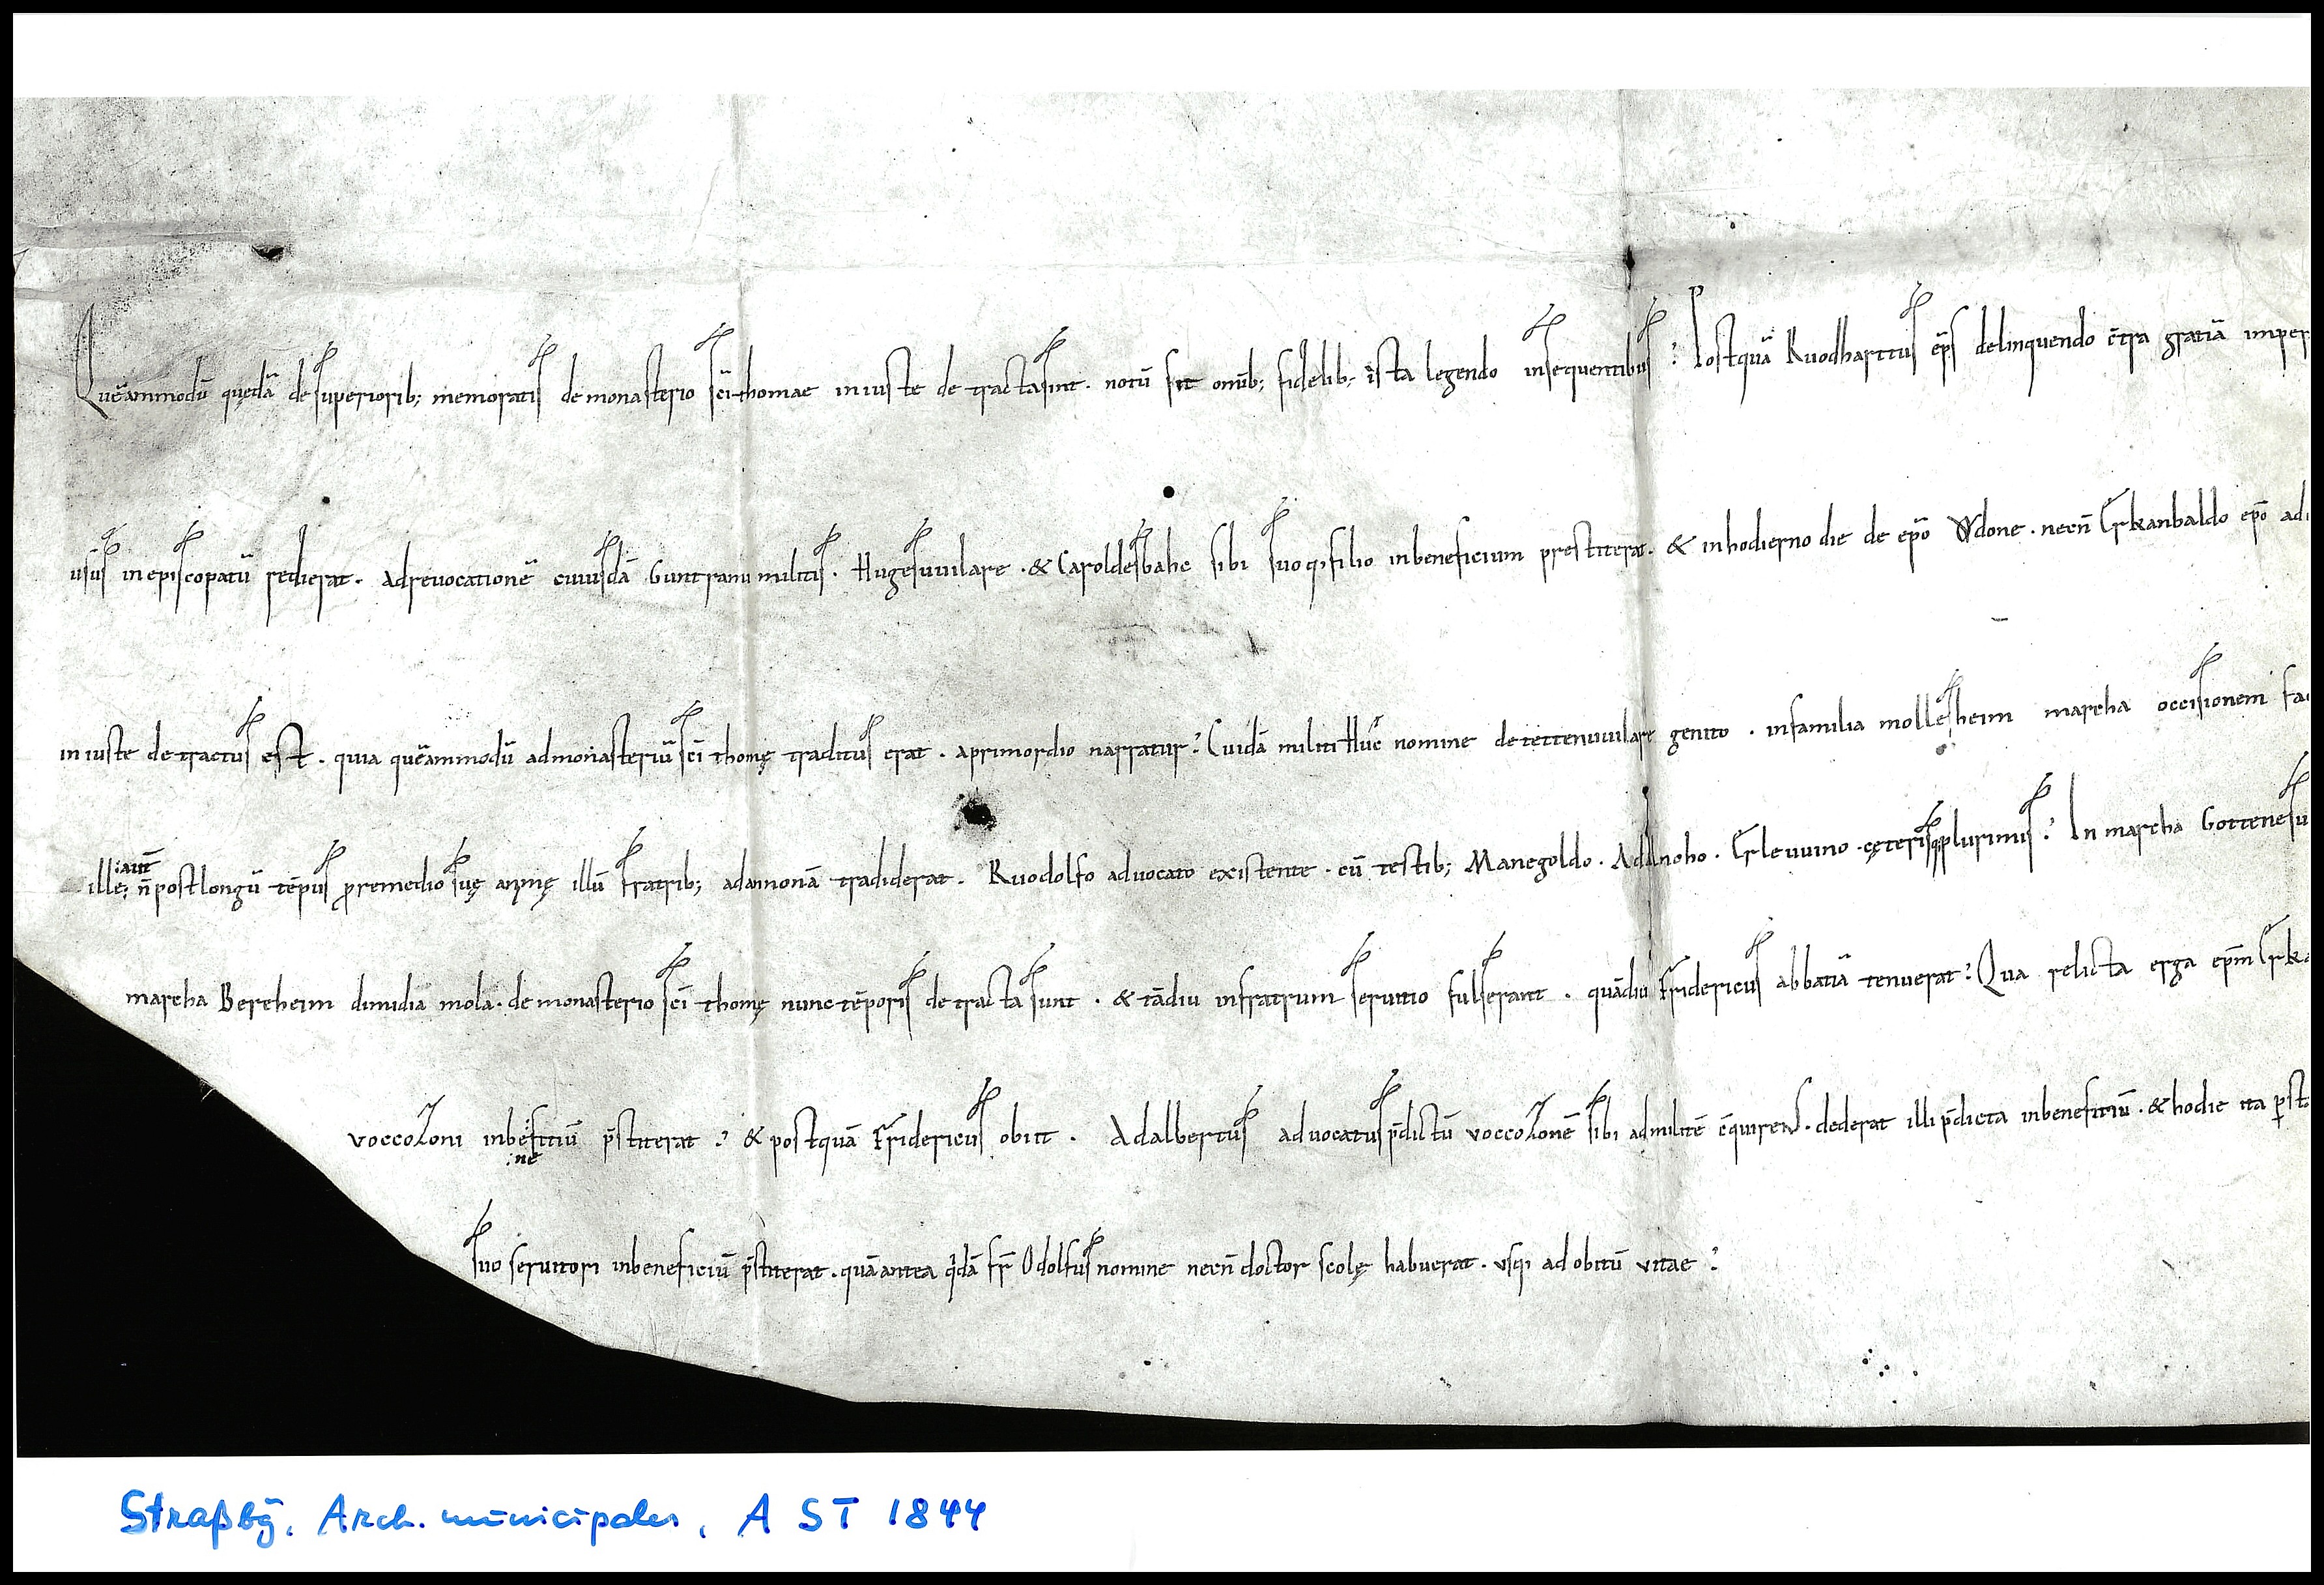 Quēammodū quędā de superiorib; memoratis de monasterio sc̄i thomae iniuste detracta sint · notū sit omīb; fidelib; ista legendo insequentibus ? Postquā Ruodharttus ēps delinquendo c̄tra gratiā imper
usus in episcopatū redierat · ad revocationē cuiusdā Guntranni militis · Hugesuuilare · & Caroldesbahc sibi suoqꝫ filio in beneficium prestiterat · & in hodierno die de epō Vdone · necn̄ Erkanbaldo epō ad
iniuste detractus est · quia quēammodū ad monasteriū sc̄i thomę traditus erat · a primordio narratur ? Cuidā militi Huc nomine de tettenuuilare genito · in familia mollesheim marcha occisionem fa
ille; aut̄ n̄ post longū tēpus ꝓ remedio suę anīmę illū fratrib; ad annonā tradiderat · Ruodolfo advocato existente · cū testib; Manegoldo · Adalnoho · Erlevuino · cęterisqꝫ plurimis ? In marcha Gottenesu
marcha Bercheim dimidia mola · de monasterio sc̄i thomę nunc tēporis detracta sunt · & tādiu in fratrum servitio fulserant · quādiu Fridericus abbatiā tenuerat ? Qua relicta erga epm̄ Erka
voccoZoni in befitiū p̄stiterat ? & postquā Fridericus obiit · Adalbertus advocatus p̄dictū voccoZonē sibi ad militē c̄quirens · dederat illi p̄dicta in benefitiū · & hodie ita p̄st
ne
suo servitori in beneficiū p̄stiterat · quā antea qdā fr̄ Odolfus nomine necn̄ doctor scolę habuerat · usqꝫ ad obitū vitae ?
Straßbg, Arch. municipales, A ST 1844